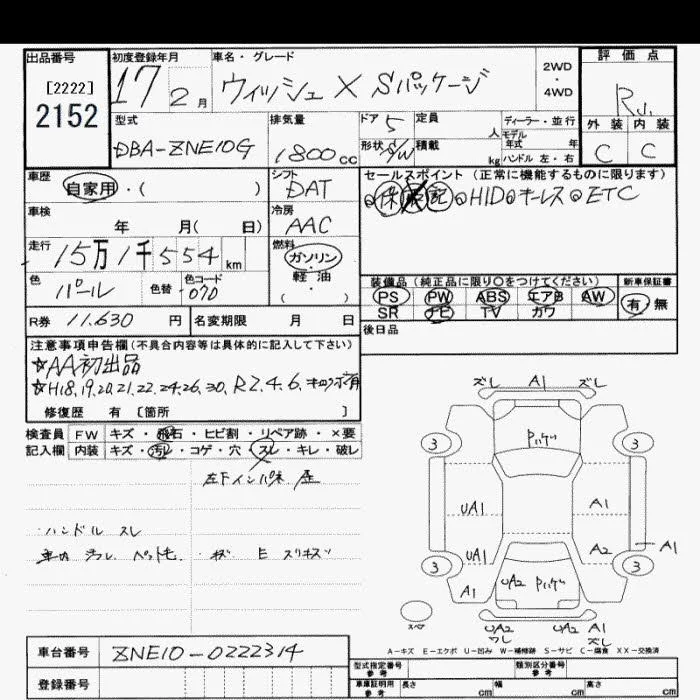 出品番号
[2222]
2152
初度登録年月
17 2月
車名・グレード
ウィッシュ X Sパッケージ
2WD
・
4WD
評価点
外装 内装
C C
型式
DBA-ZNE10G
排気量
1800cc
ドア 5
形状 S/W
定員
人
積載
kg
ディーラー・並行
モデル
年式 年
ハンドル 左・右
車歴
自家用・( )
シフト
DAT
車検
年 月( 日)
冷房
AAC
走行
15万1千554km
燃料
ガソリン
・
軽油
( ・ )
色
パール
色替
色コード
070
R券 11.630円
名変期限 月 日
セールスポイント (正常に機能するものに限ります)
HID キーレス ETC
装備品 (純正品に限り○をつけてください)
PS PW ABS エアB AW
SR ナビ TV カワ
新車保証書
有・無
後日品
注意事項申告欄(不具合内容等は具体的に記入して下さい)
☆AA初出品
☆H18,19,20,21,22,24,26,30, R2,4,6,
修復歴 有 [箇所 ]
検査員
記入欄
FW キズ・飛石・ヒビ割・リペア跡・×要
内装 キズ・汚レ・コゲ・穴・スレ・キレ・破レ
ハンドル スレ
ズレ A1 ズレ
3 3
UA1 A1
UA1 A2 A1
3 3
A1 UA2
スペア
UA2 UA2 A1
ズレ
A-キズ E-エクボ U-凹み W-補修跡 S-サビ C-腐食 XX-交換済
車台番号 ZNE10-0222314
登録番号
型式指定番号
参考
類別区分番号
参考
車庫証明用
参考
長さ cm 幅 cm 高さ cm